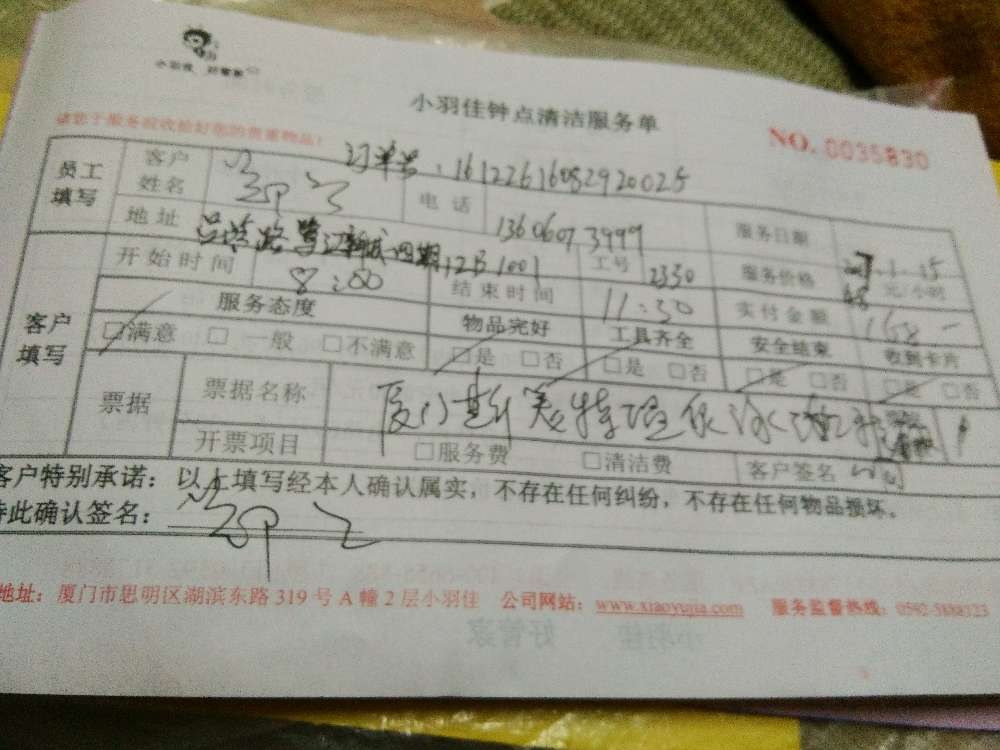 小羽佳 好管家
小羽佳钟点清洁服务单
NO. 0035830
请您于服务前收拾好您的贵重物品!
订单号:16122616082920025
员工填写
客户姓名
电话
13606073999
服务日期
1.15
地址
四期12B1001
工号
2330
服务价格
元/小时
客户填写
开始时间
8:00
结束时间
11:30
实付金额
168
服务态度
物品完好
工具齐全
安全结束
收到卡片
□满意 □一般 □不满意
□是 □否
□是 □否
□是 □否
□是 □否
票据
票据名称
厦门
开票项目
□服务费
□清洁费
客户签名
客户特别承诺:以上填写经本人确认属实,不存在任何纠纷,不存在任何物品损坏。
特此确认签名:
地址:厦门市思明区湖滨东路 319 号 A 幢 2 层小羽佳 公司网站:www.xiaoyujia.com 服务监督热线:0592-5888323